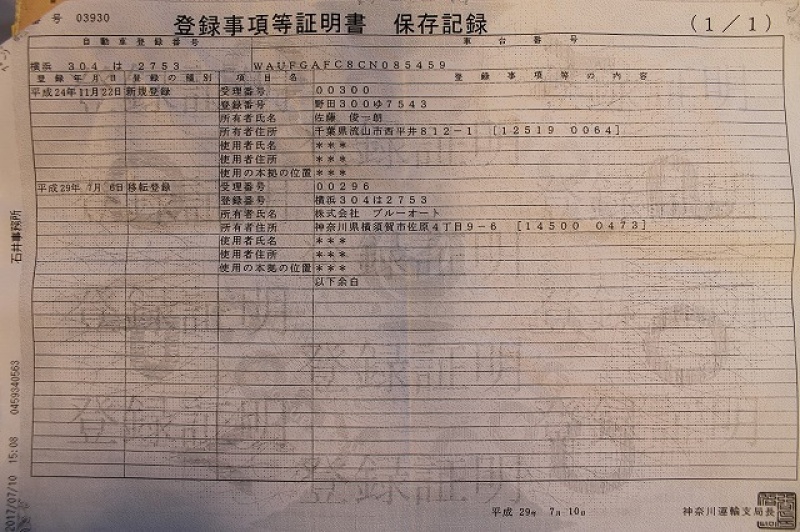 号 03930
登録事項等証明書 保存記録 (1/1)
自動車登録番号 車台番号
横浜 304 は 2753 WAUFGAFC8CN085459
登録年月日 登録の種別 項目名 登録事項等の内容
平成24年11月22日 新規登録 受理番号 00300
登録番号 野田300ゆ7543
所有者氏名 佐藤 俊一朗
所有者住所 千葉県流山市西平井812-1 [12519 0064]
使用者氏名 ***
使用者住所 ***
使用の本拠の位置 ***
平成29年 7月 6日 移転登録 受理番号 00296
登録番号 横浜304は2753
所有者氏名 株式会社 ブルーオート
所有者住所 神奈川県横須賀市佐原4丁目9-6 [14500 0473]
使用者氏名 ***
使用者住所 ***
使用の本拠の位置 ***
以下余白
登録証明
登録証明
登録証明
登録証明
登録証明
平成 29年 7月 10日 神奈川運輸支局長
2017/07/10 15:08 0459340563 石井事務所